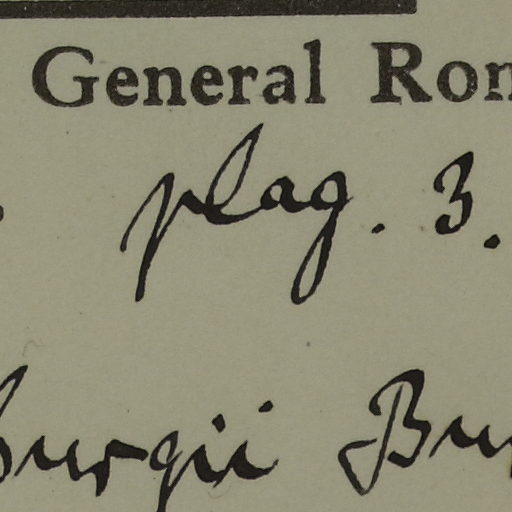 General Ron
plag. 3.
burgii Bur